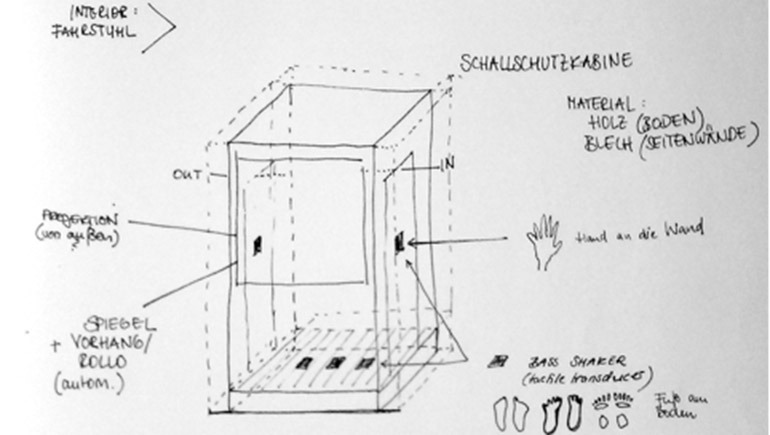 INTERIOR:
FAHRSTUHL
SCHALLSCHUTZKABINE
MATERIAL:
HOLZ (BODEN)
BLECH (SEITENWÄNDE)
OUT
IN
PROJEKTION
(von außen)
Hand an die Wand
SPIEGEL
+ VORHANG/
ROLLO
(autom.)
BASS SHAKER
(tactile transducers)
Füße am
Boden